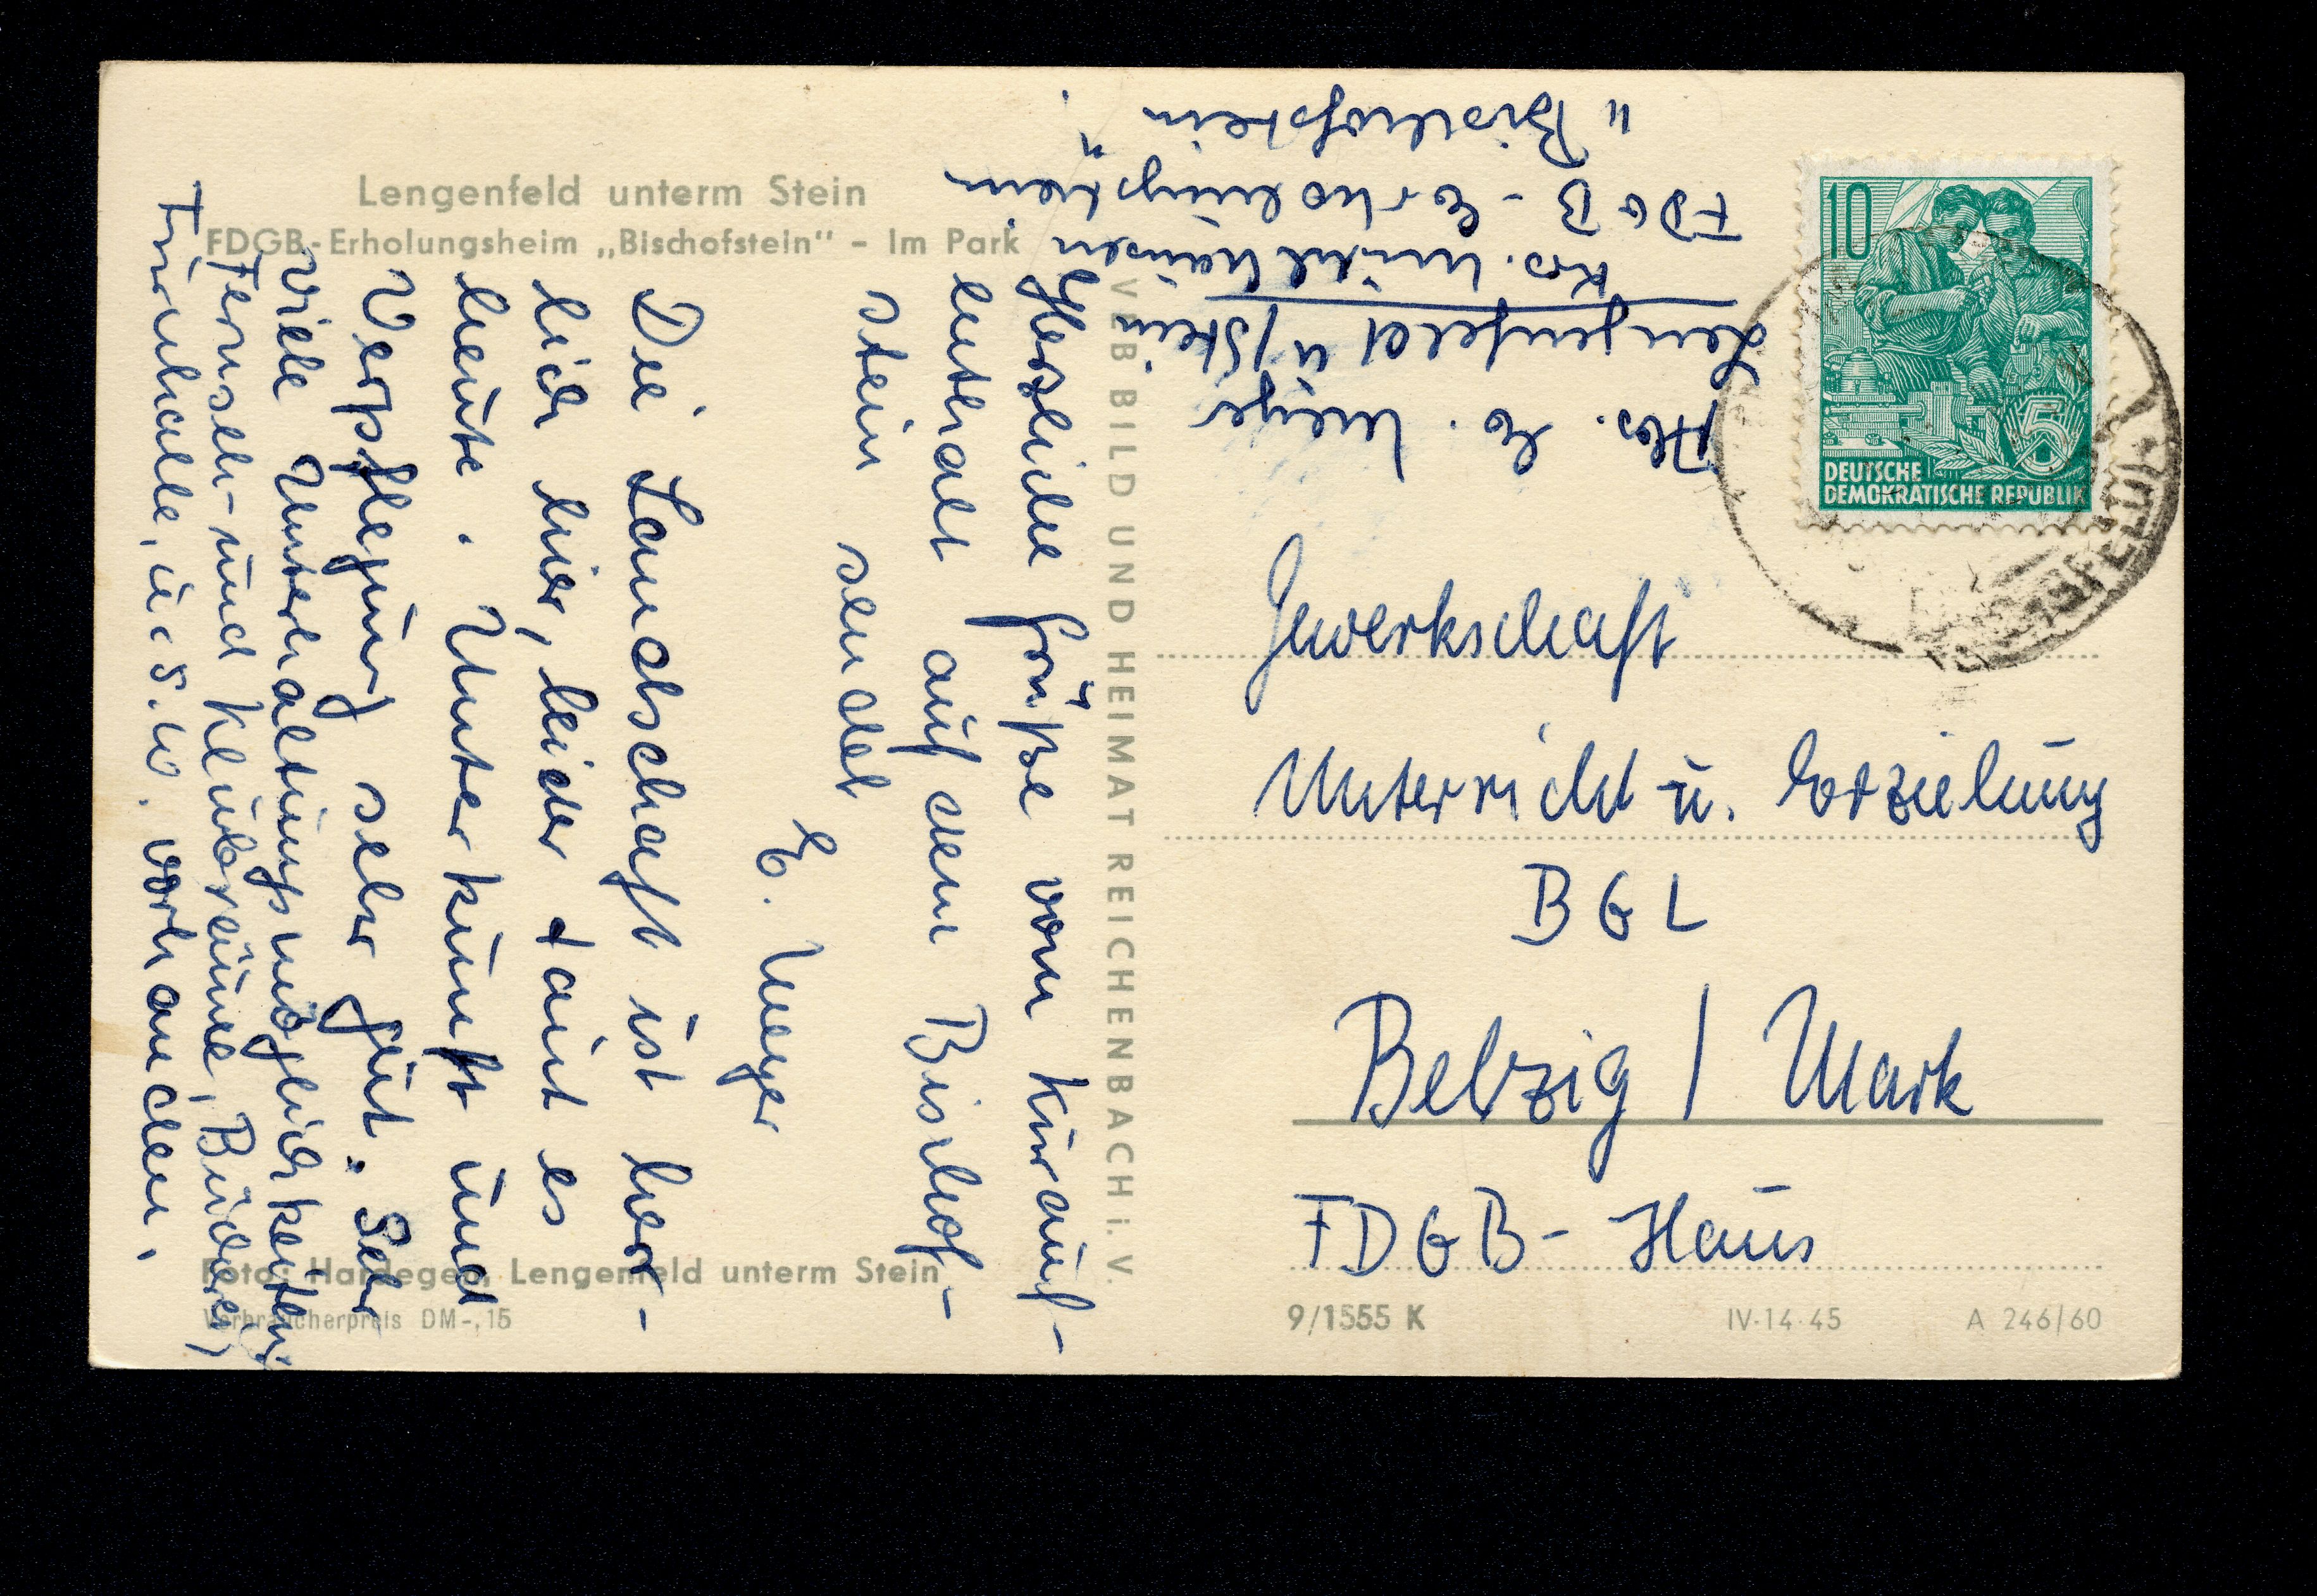 Lengenfeld unterm Stein
FDGB-Erholungsheim „Bischofstein" - Im Park
Herzliche Grüße vom Kurauf-
enthalt auf dem Bischof-
stein sendet
E. Meyer
Die Landschaft ist herr-
lich hier, leider taut es
heute. Unterkunft und
Verpflegung sehr gut. Sehr
viele Unterhaltungsmöglichkeiten,
Fernseh- und Klubräume, Bücherei,
Turnhalle, u.s.w. vorhanden.
Foto: Hardegen, Lengenfeld unterm Stein
Verbraucherpreis DM -,15
VEB BILD UND HEIMAT REICHENBACH i. V.
Abs. E. Meyer
Lengenfeld u/Stein
Krs. Mühlhausen
FDGB-Erholungsheim
"Bischofstein".
10
5
DEUTSCHE
DEMOKRATISCHE REPUBLIK
Gewerkschaft
Unterricht u. Erziehung
BGL
Belzig / Mark
FDGB-Haus
9/1555 K
IV-14-45
A 246/60